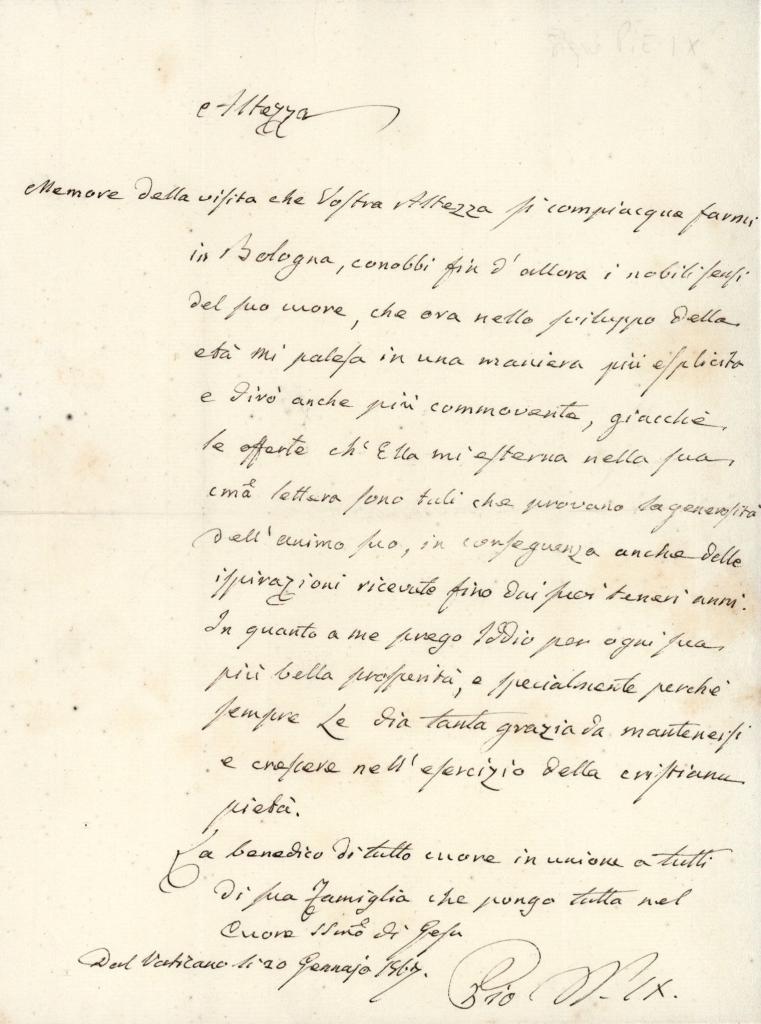 Altezza
Memore della visita che Vostra Altezza si compiacque farmi
in Bologna, conobbi fin d'allora i nobili sensi
del suo cuore, che ora nello sviluppo della
età mi palesa in una maniera più esplicita
e dirò anche più commovente, giacchè
le offerte ch'Ella mi esterna nella sua
cmã lettera sono tali che provano la generosità
dell'animo suo, in conseguenza anche delle
ispirazioni ricevute fino dai suoi teneri anni.
In quanto a me prego Iddio per ogni sua
più bella prosperità, e specialmente perchè
sempre Le dia tanta grazia da mantenersi
e crescere nell'esercizio della cristiana
pietà.
La benedico di tutto cuore in unione a tutti
di sua Famiglia che pongo tutta nel
Cuore SSmõ di Gesu
Dal Vaticano li 20 Gennajo
Pio P. IX.